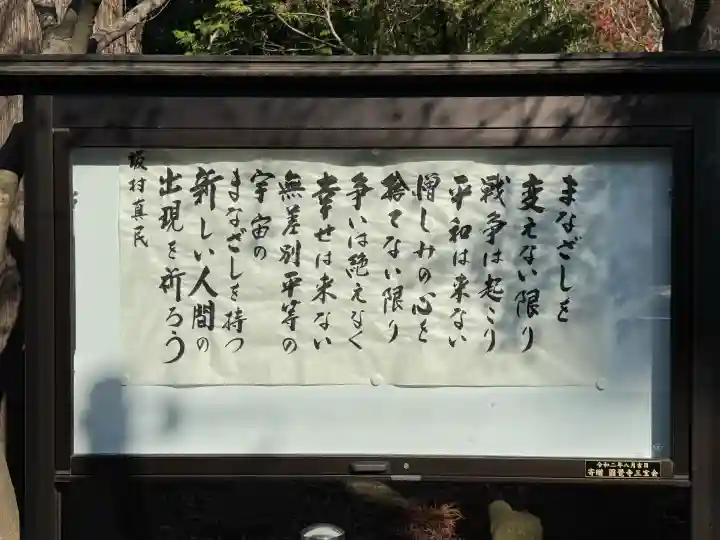 まなざしを
変えない限り
戦争は起こり
平和は来ない
憎しみの心を
捨てない限り
争いは絶えなく
幸せは来ない
無差別平等の
宇宙の
まなざしを持つ
新しい人間の
出現を祈ろう
坂村真民
令和二年八月吉日
寄贈 圓覺寺三宝会